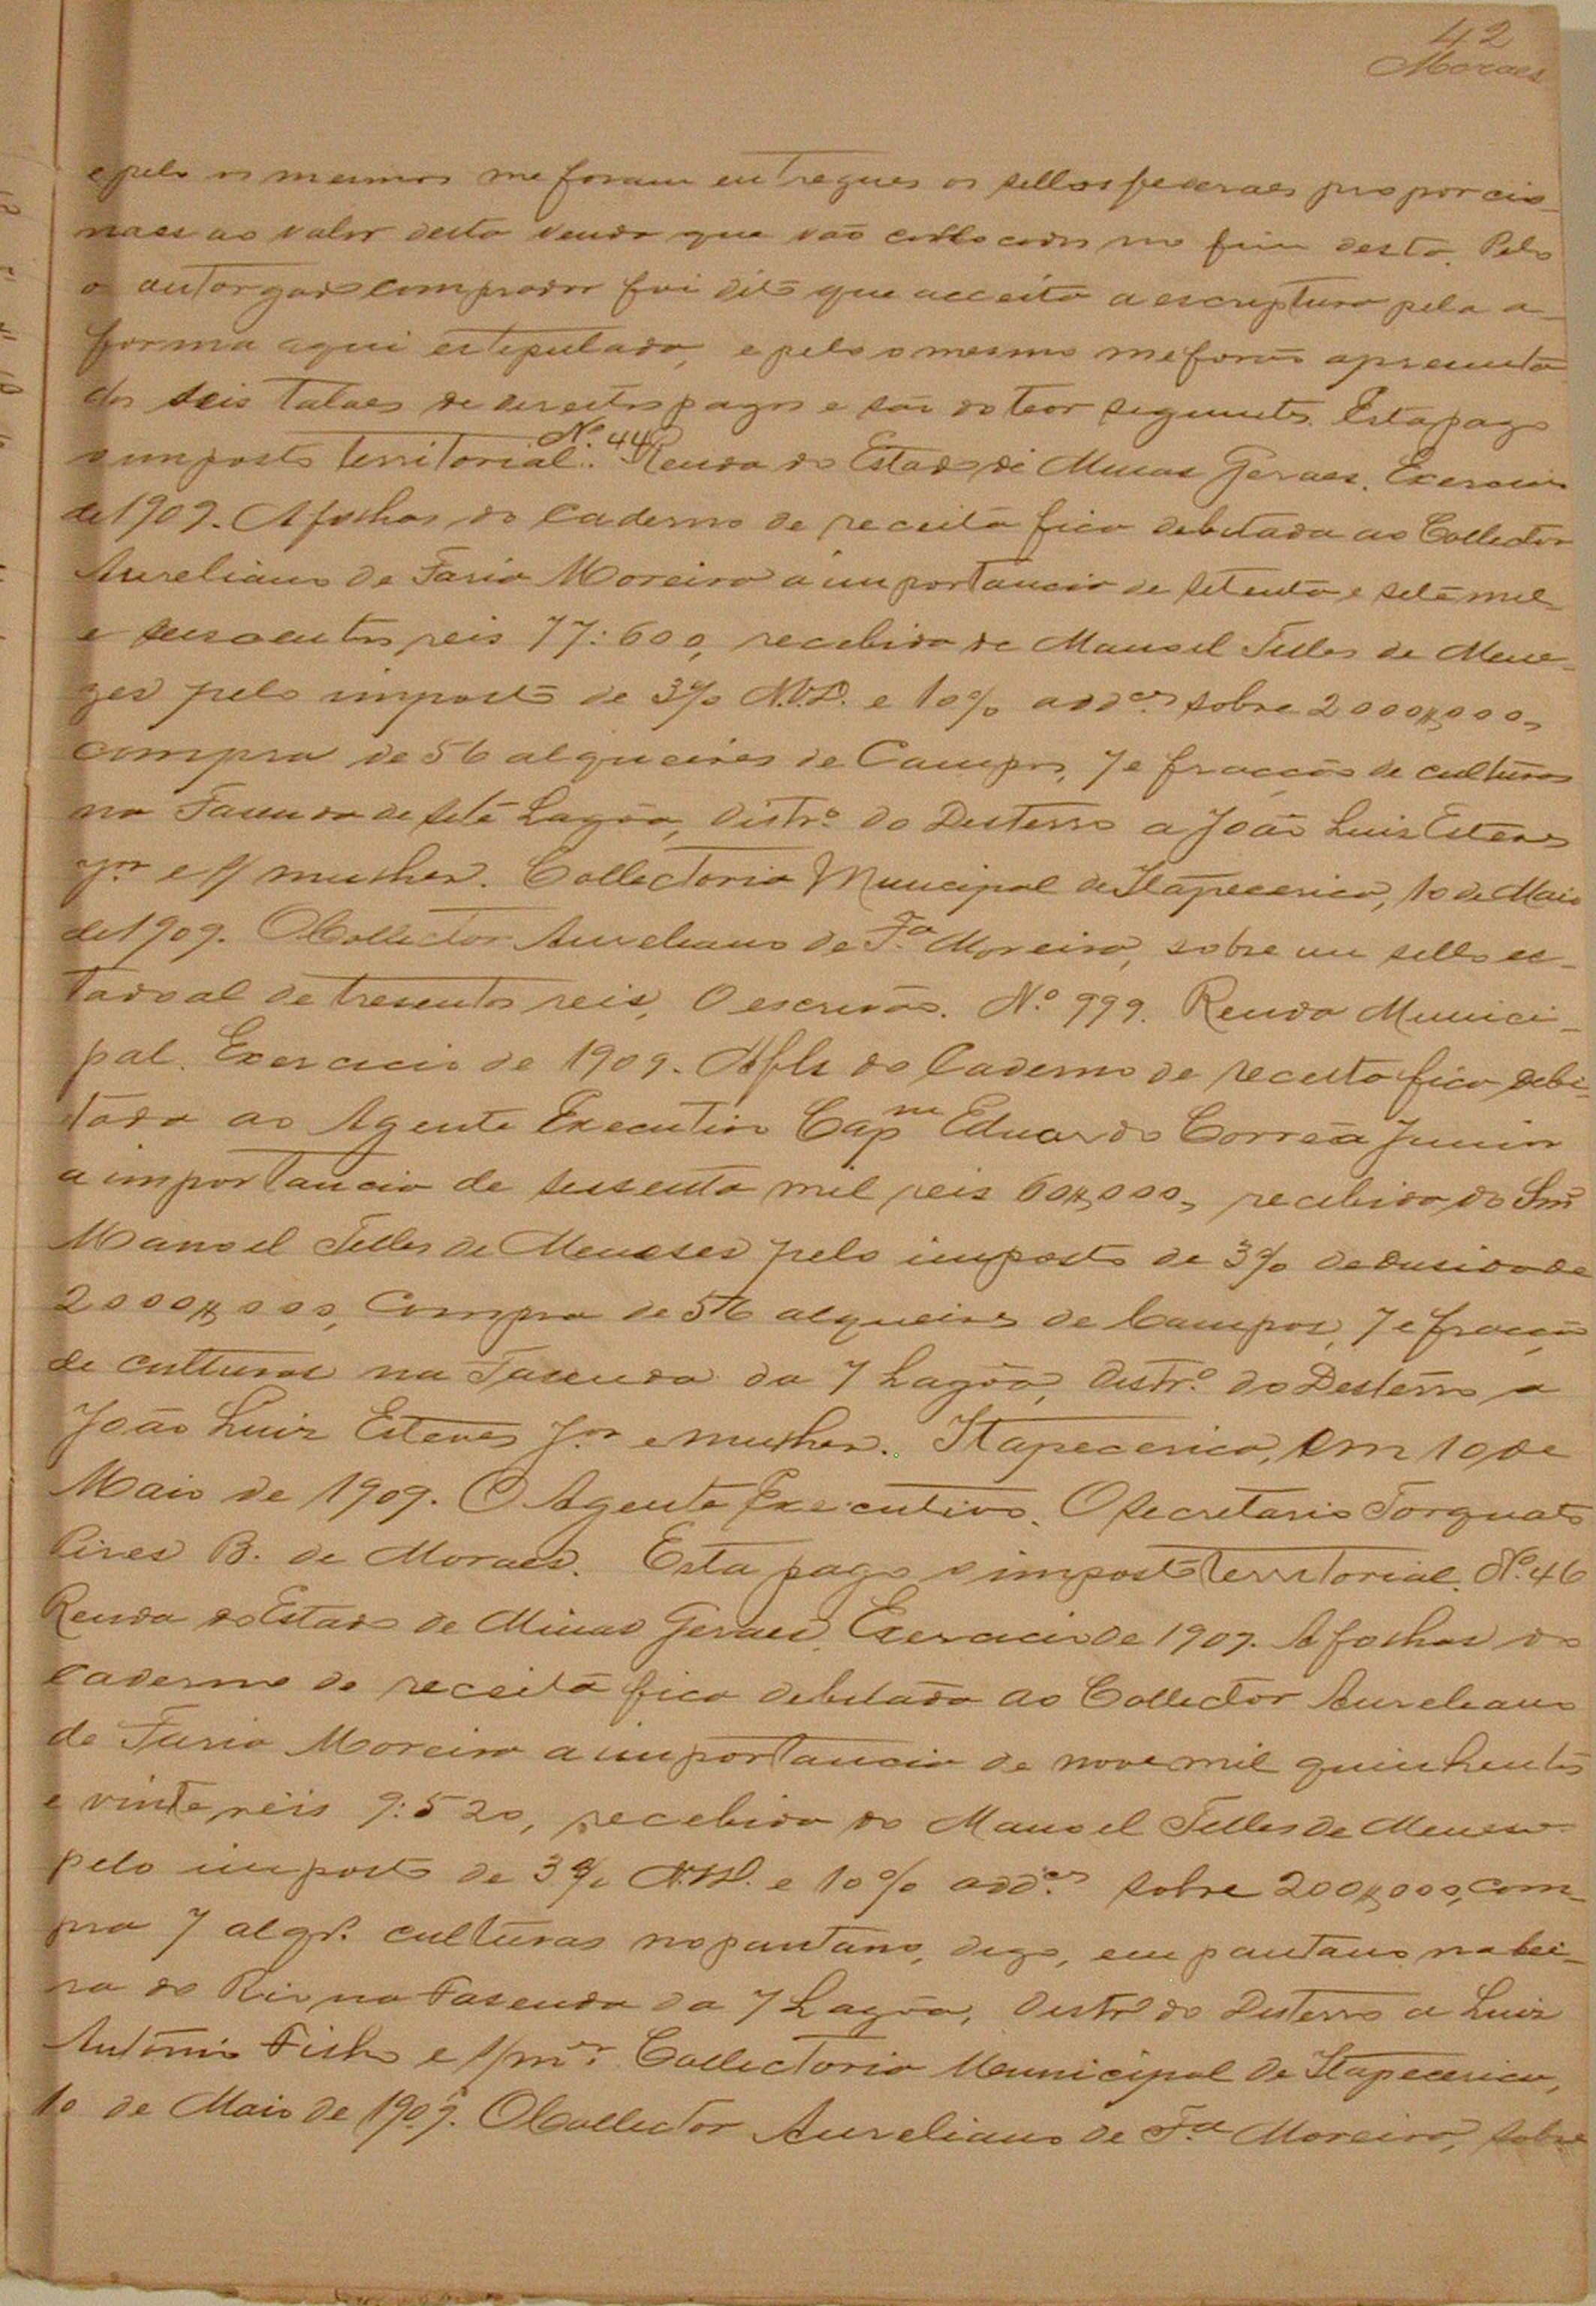 42
Moraes
e pelo os mesmos me foram entregues os sellos federaes proporcio-
naes ao valor desta venda que vão collocados no fim desta. Pelo
o outorgado comprador foi dito que acceita a escriptura pela a
forma aqui estipulada, e pelo o mesmo me forão apresenta
dos seis talões de direitos pagos e são do teor seguinte. Esta pago
Nº 44
o imposto territorial. Renda do Estado de Minas Geraes. Exercicio
de 1909. A folhas do caderno de receita fica debitada ao Collector
Aureliano de Faria Moreira a importancia de setenta e sete mil
e seiscentos reis 77:600, recebida de Manoel Telles de Mene-
zes pelo imposto de 3% N.V.D. e 10% addes sobre 2000$000,
compra de 56 alqueires de Campos, 7 e fracção de culturas
na Fazenda de sete Lagôa, distrº do Desterro a João Luis Esteves
Jor e s/ mulher. Collectoria Municipal de Itapecerica, 10 de Maio
de 1909. O Collector Aureliano de Fa Moreira, sobre um sello es-
tadoal de tresentos reis, O escrivão. Nº 999. Renda Munici-
pal. Exercicio de 1909. A fls do Caderno de receita fica debi-
tada ao Agente Executivo Capm Eduardo Corrêa Junior
a importancia de sessenta mil reis 60$000, recebida do Snr
Manoel Telles de Meneses pelo imposto de 3% dedusido de
2000$000, Compra de 56 alqueires de Campos, 7 e fracção
de culturas na Fazenda da 7 Lagôa, distrº do Desterro a
João Luiz Esteves Jor e mulher. Itapecerica, em 10 de
Maio de 1909. O Agente Executivo. O secretario Torquato
Pires B. de Moraes. Esta pago o imposto territorial. Nº 46
Renda do Estado de Minas Geraes Exercicio de 1909. A folhas do
Caderno de receita fica debitada ao Collector Aureliano
de Faria Moreira a importancia de nove mil quinhentos
e vinte réis 9:520, recebida do Manoel Telles de Meneses
pelo imposto de 3% e 10% addes sobre 200$000, com-
pra 7 algs. culturas no pantano, digo, em pantano na bei-
ra do Rio na Fasenda da 7 Lagôa, distrº do Desterro a Luiz
Antonio Filho e s/ mer Collectoria Municipal de Itapecerica,
10 de Maio de 1909. O Collector Aureliano de Fa Moreira, sobre